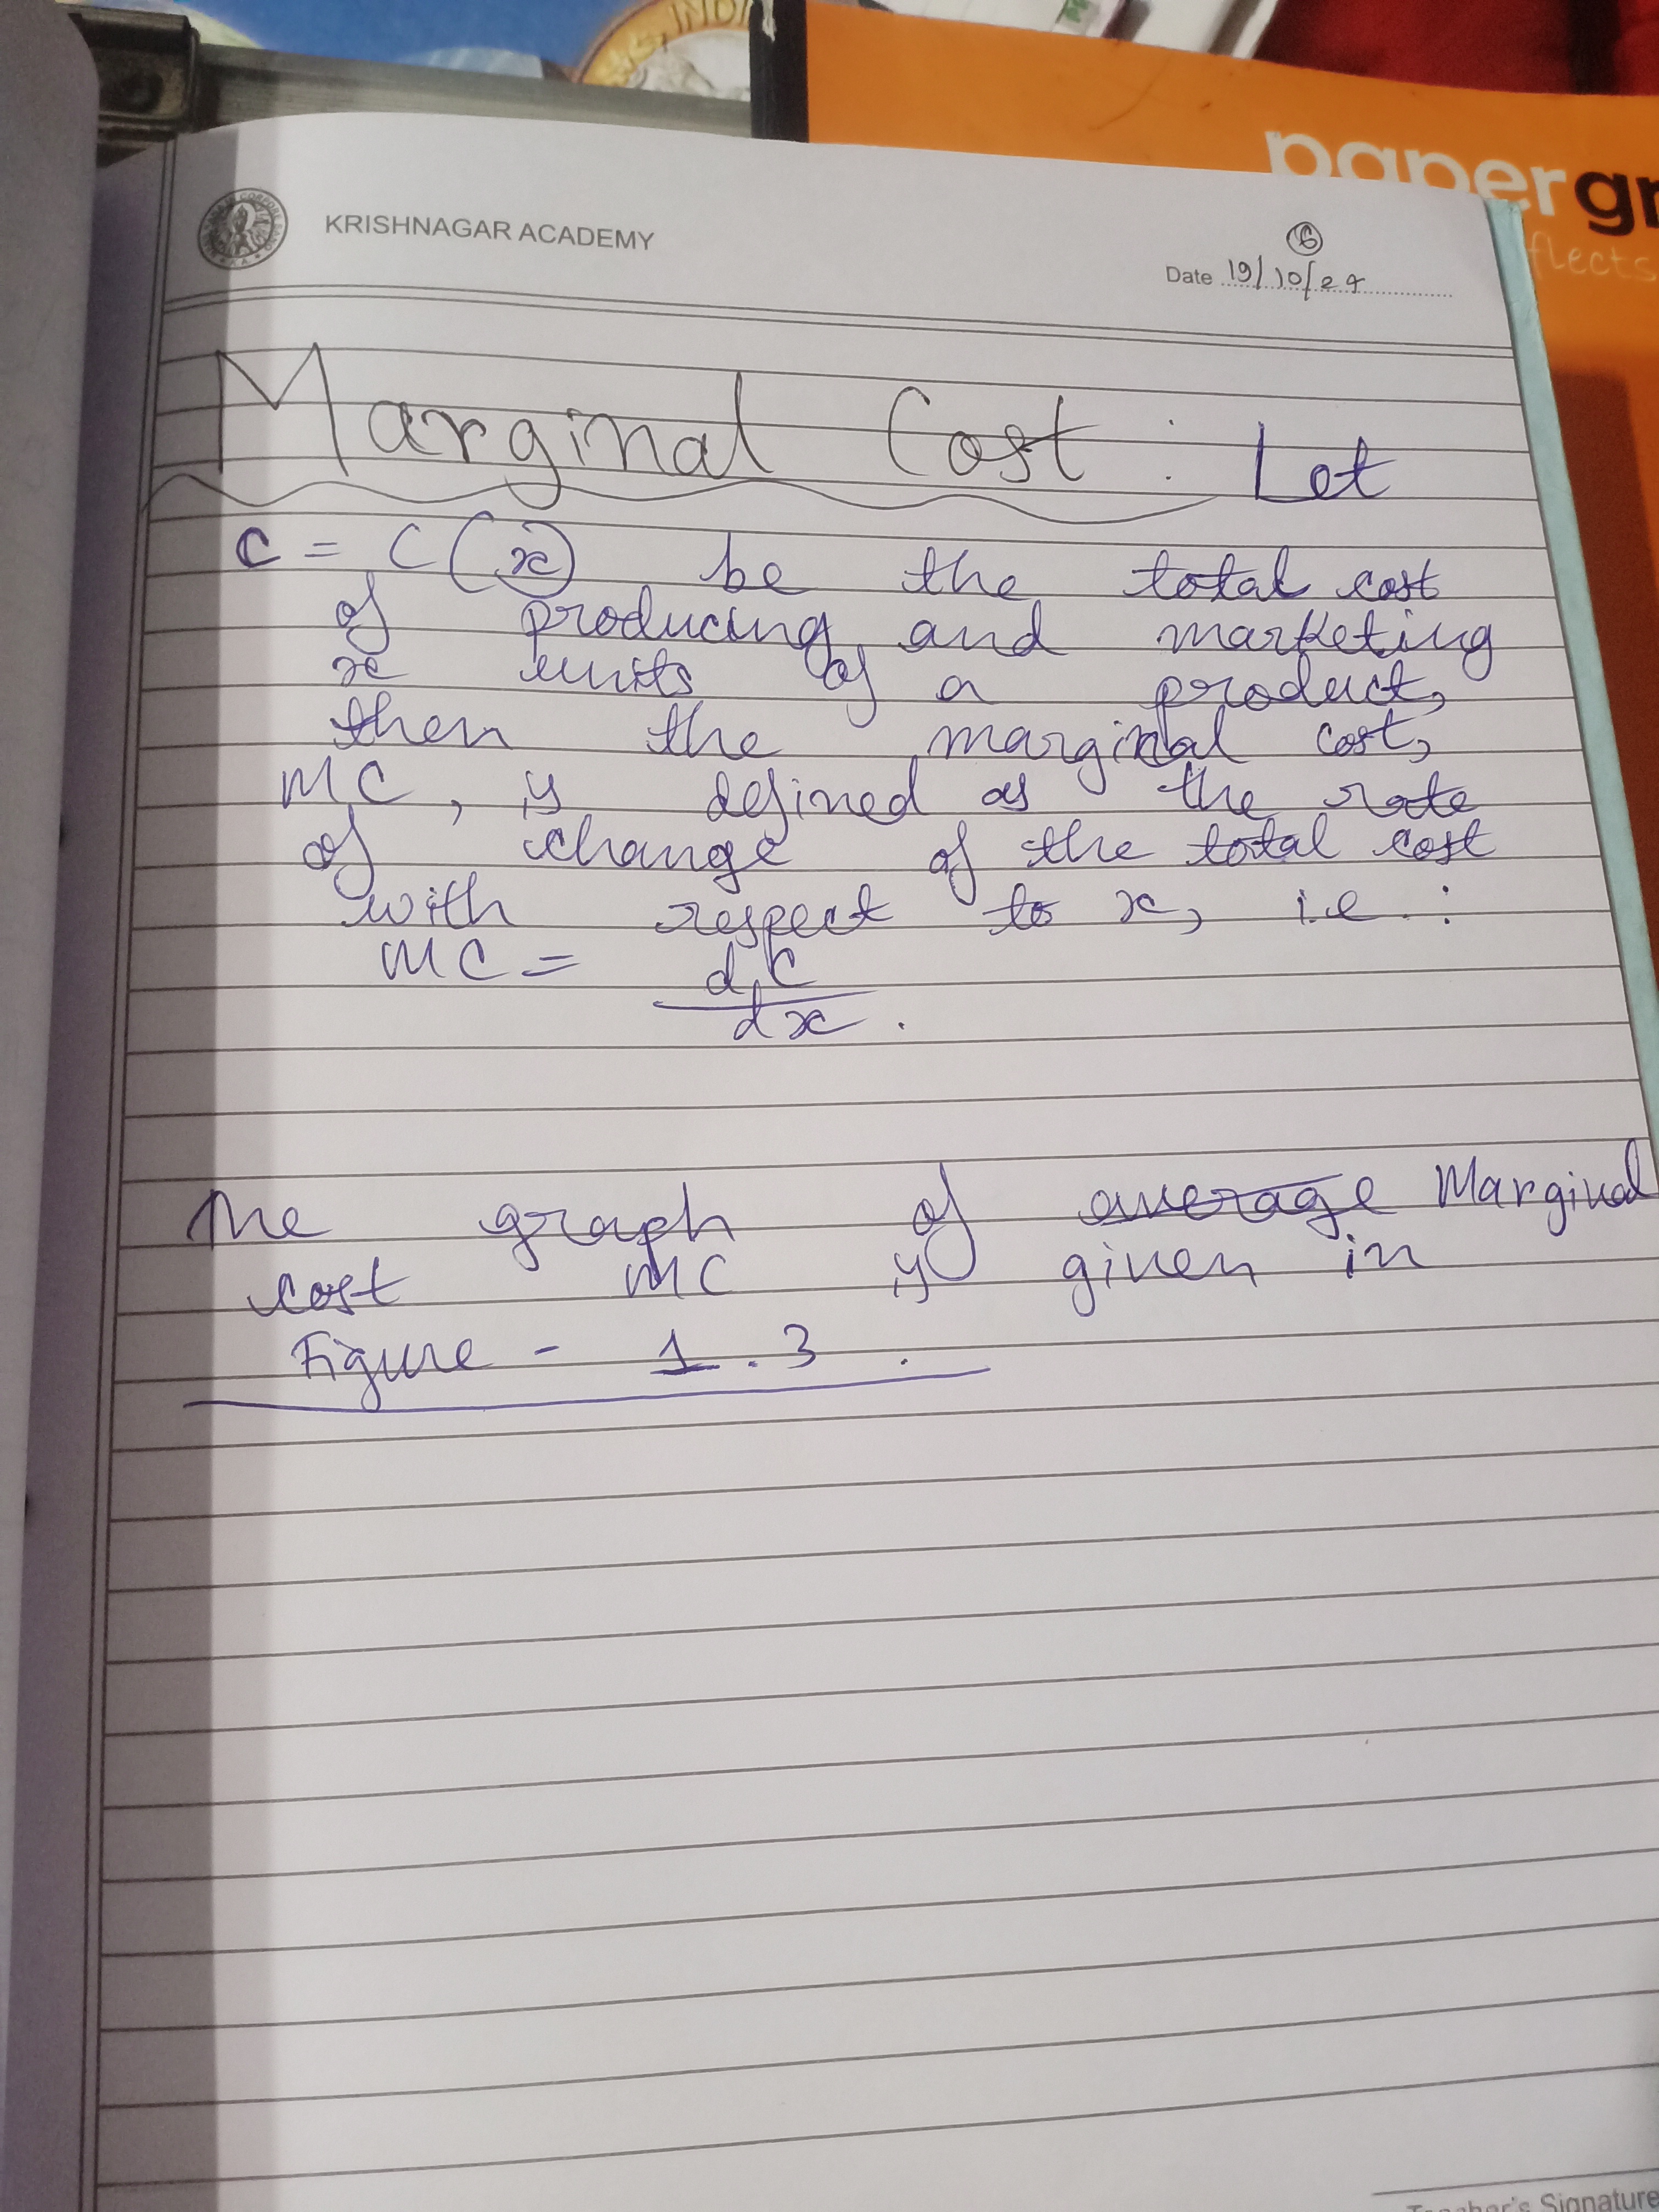 INDI
papergr
flects
KRISHNAGAR ACADEMY
6
Date 19/10/24
Marginal Cost : Let
C = C(x) be the total cost
of producing and marketing
x units of a product,
then the marginal cost,
MC, is defined as the rate
of change of the total cost
with respect to x, i.e. :
MC = dC
dx .
The graph of average Marginal
cost MC is given in
Figure - 1.3 .
Teacher's Signature